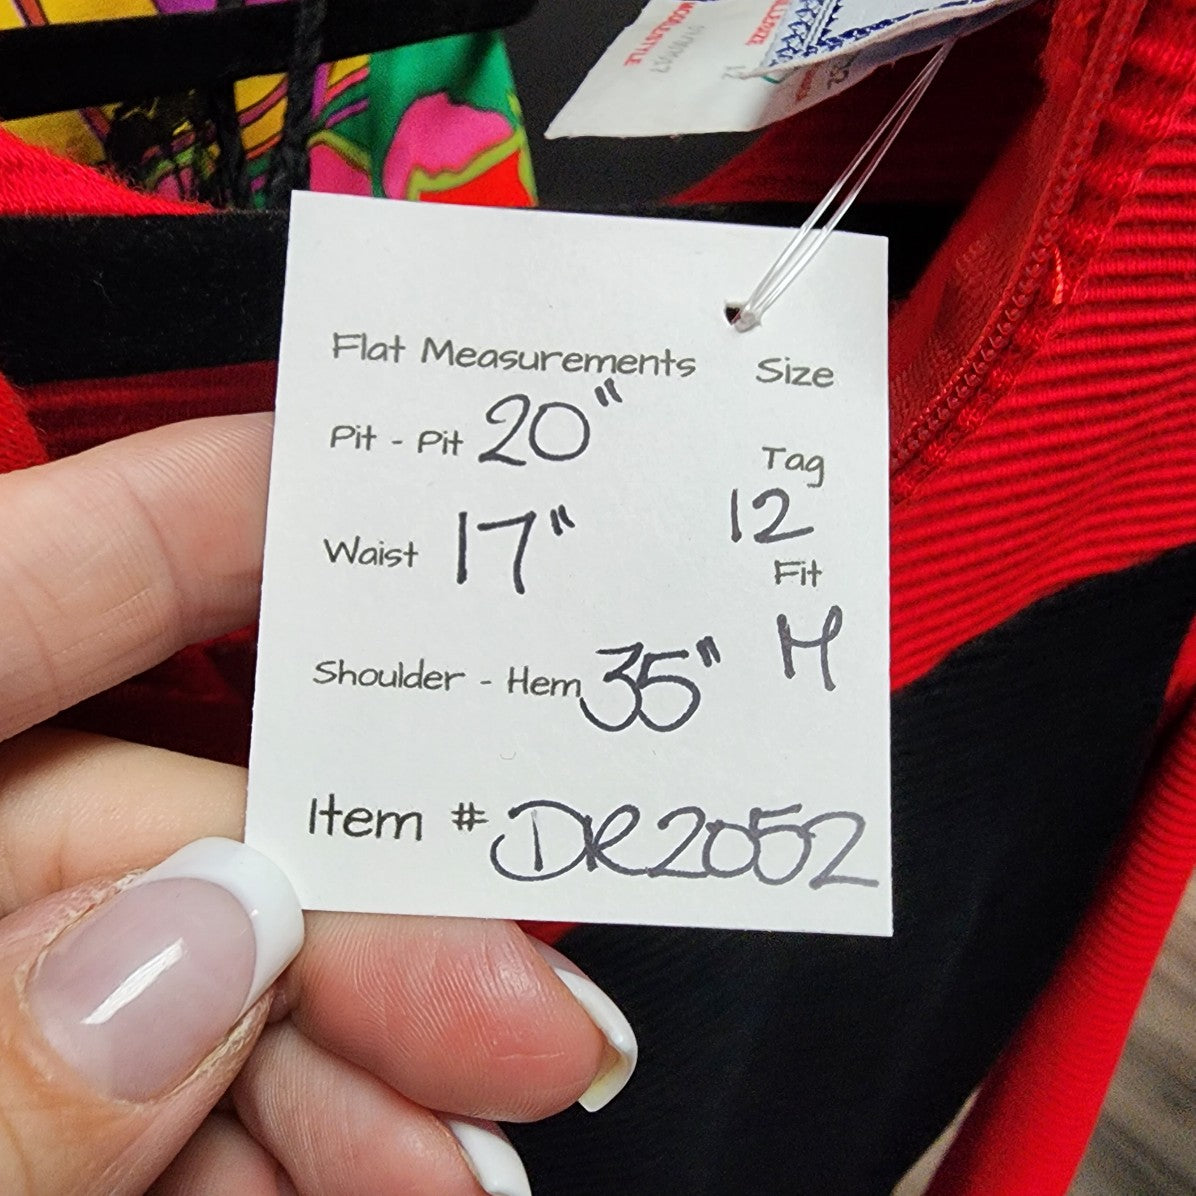 MODELE/STYLE
12
Flat Measurements Size
Pit - Pit 20"
Tag
12
Waist 17"
Fit
M
Shoulder - Hem 35"
Item # DR2052